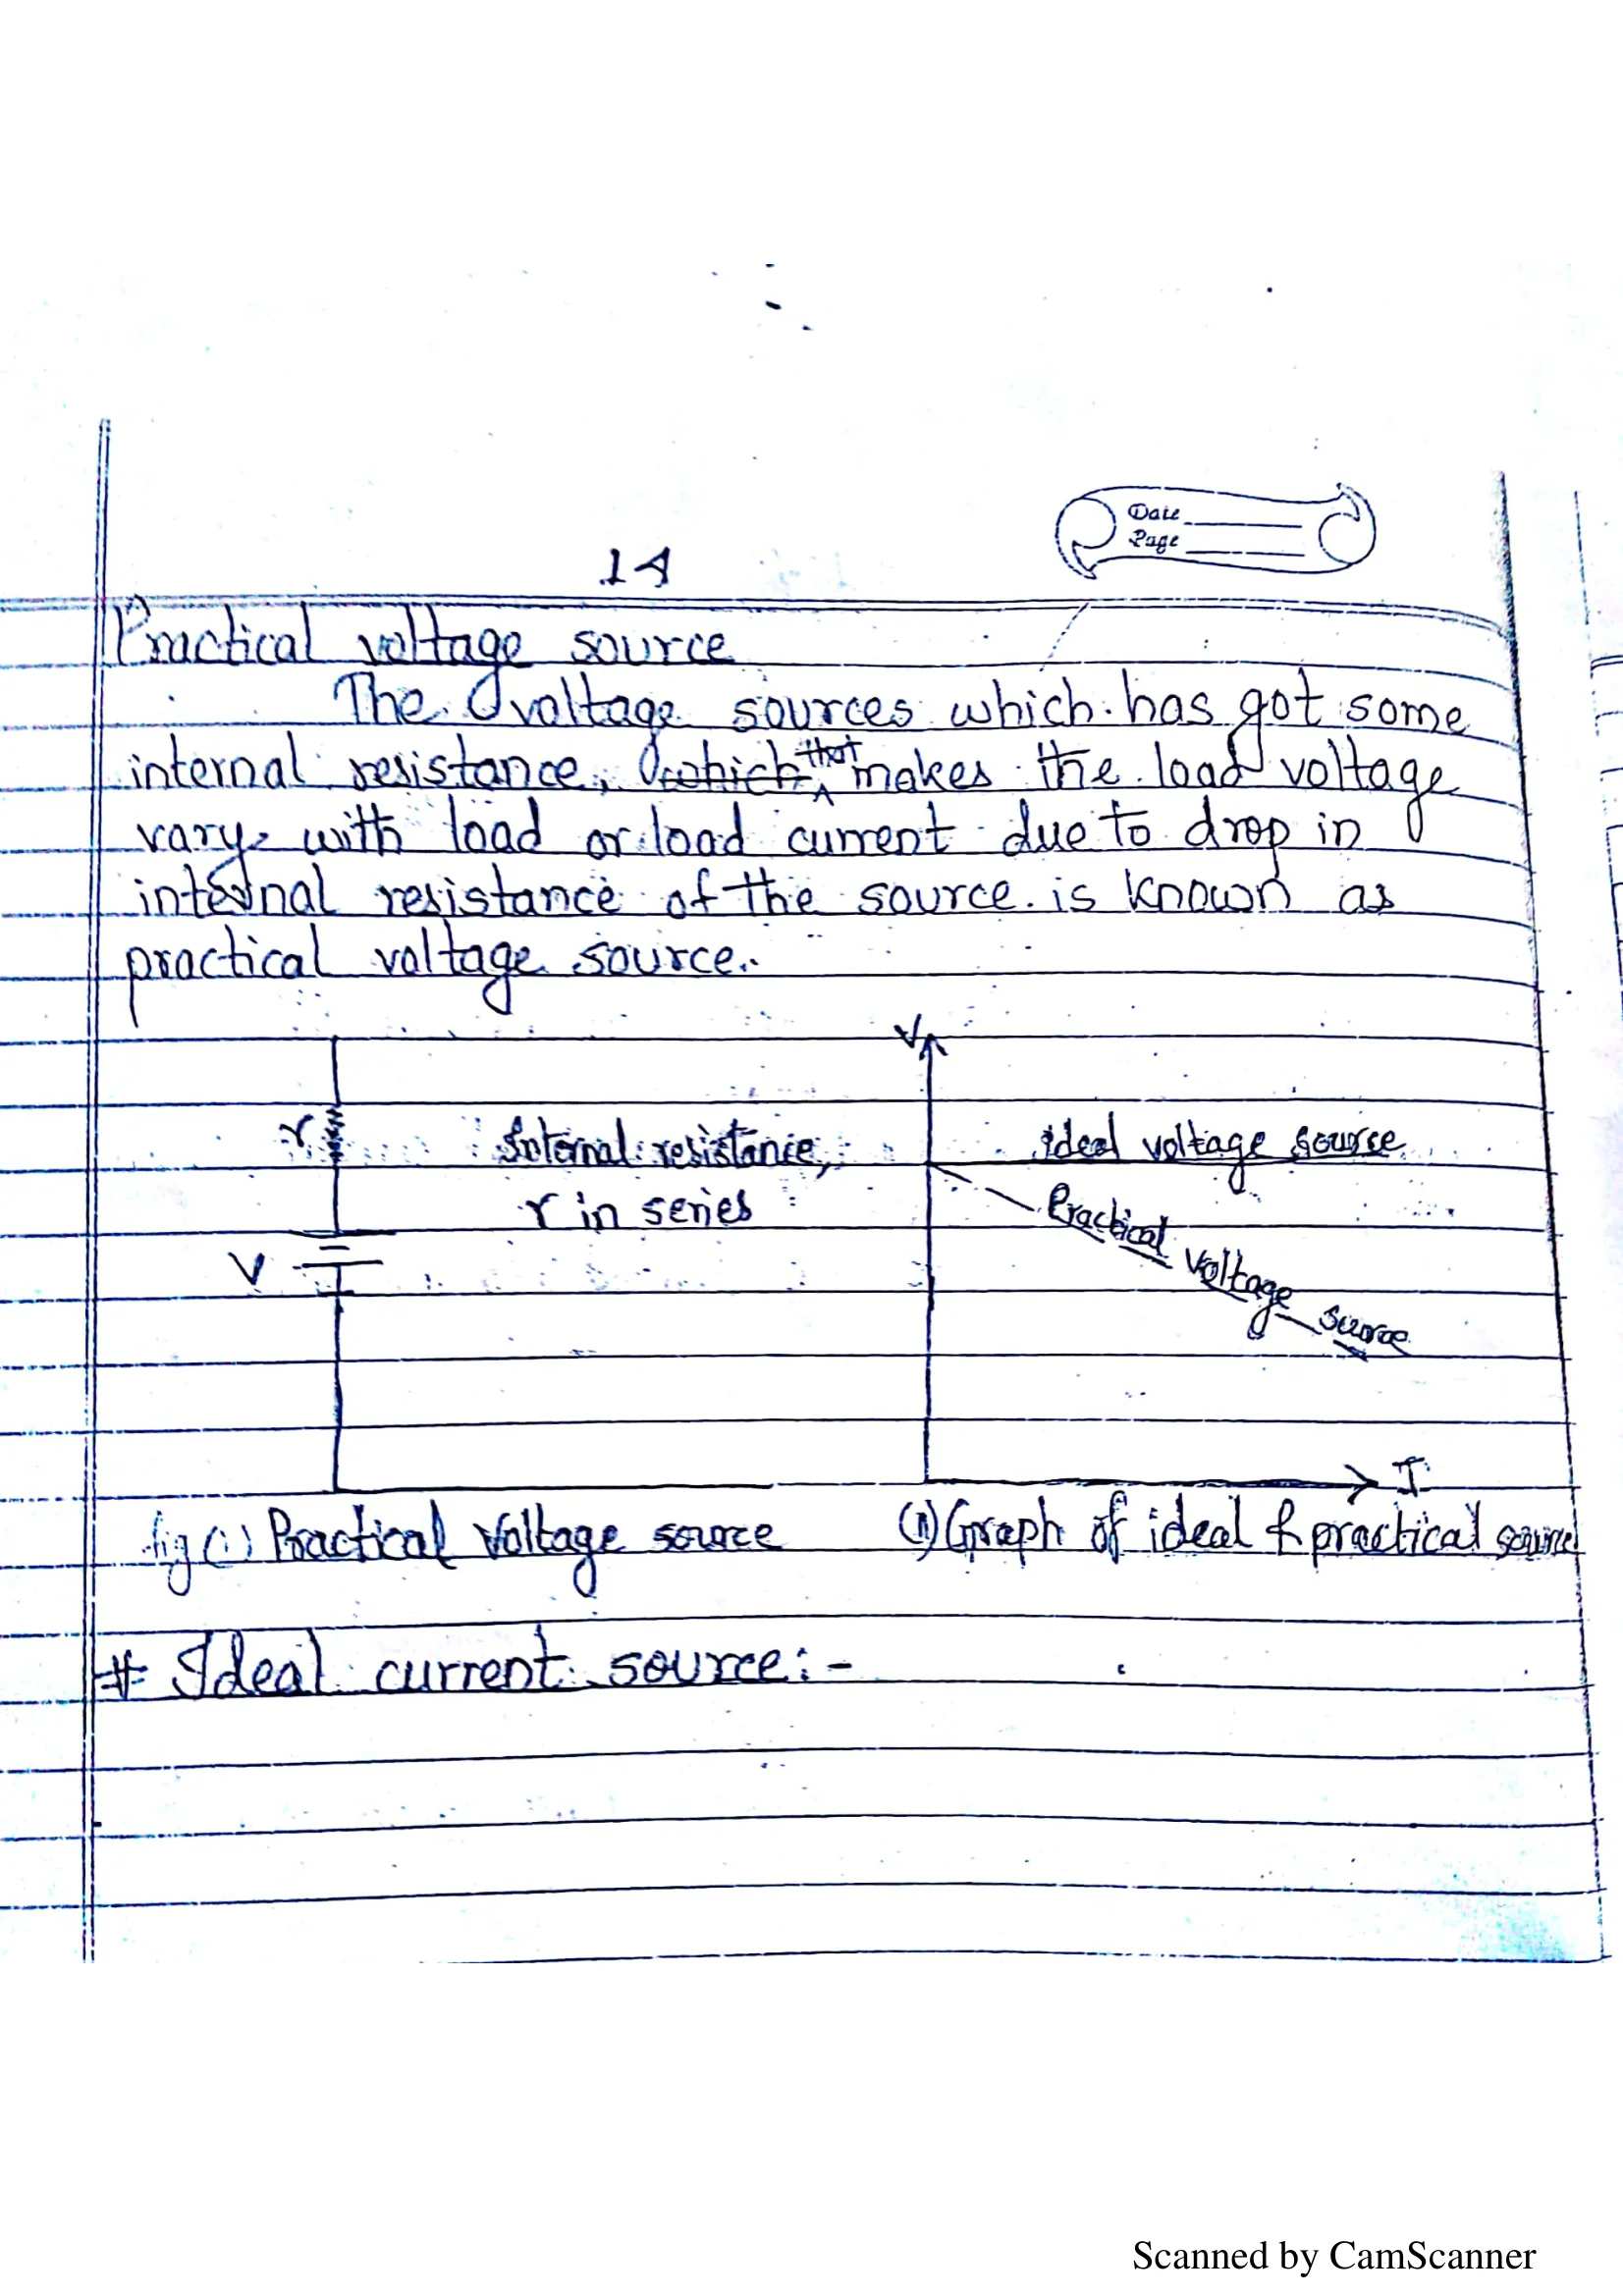 Date
Page
14
Practical voltage source
The voltage sources which has got some
internal resistance, which that makes the load voltage
vary with load or load current due to drop in
internal resistance of the source is known as
practical voltage source.
V
r
Internal resistance,
r in series
ideal voltage source
Practical voltage source
V
I
fig (i) Practical Voltage source
(ii) Graph of ideal & practical source
# Ideal current source:-
Scanned by CamScanner